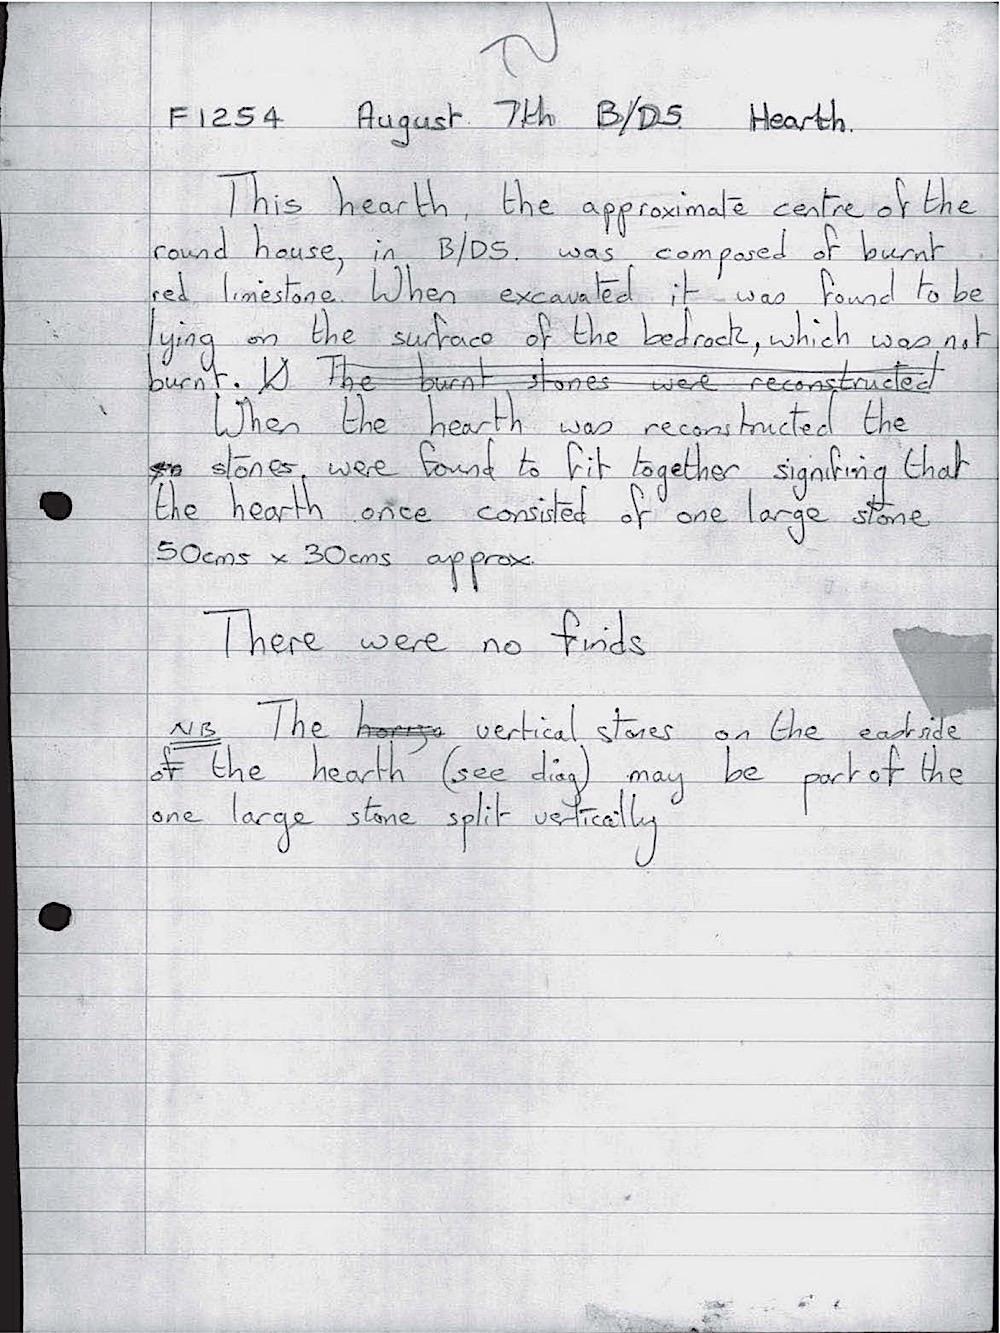 F1254 August 7th B/DS Hearth.
This hearth, the approximate centre of the
round house, in B/DS. was composed of burnt
red limestone. When excavated it was found to be
lying on the surface of the bedrock, which was not
burnt. The burnt stones were reconstructed
When the hearth was reconstructed the
stones, were found to fit together signifing that
the hearth once consisted of one large stone
50cms x 30cms approx.
There were no finds
NB The vertical stones on the eastside
of the hearth (see diag) may be part of the
one large stone split vertically